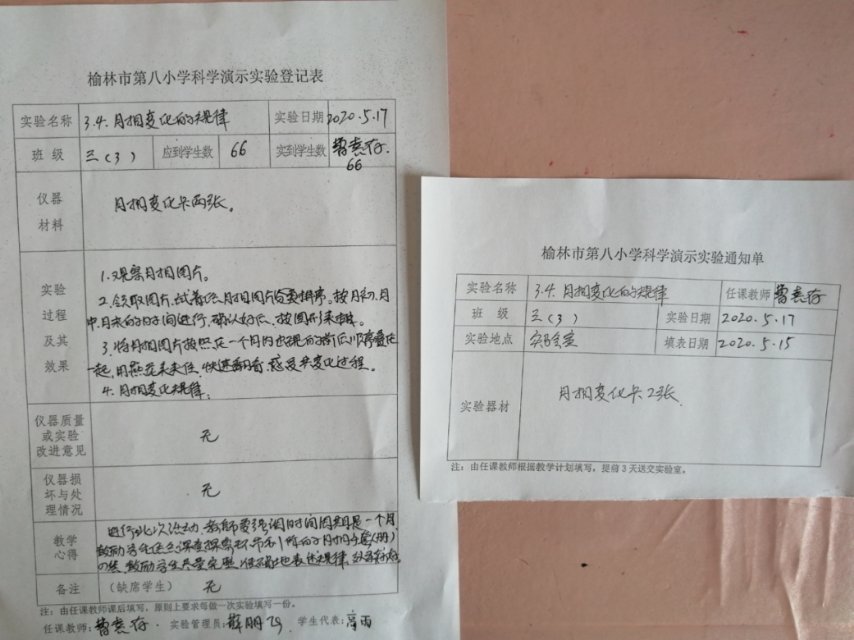 榆林市第八小学科学演示实验登记表
实验名称 3.4.月相变化的规律 实验日期 2020.5.17
班 级 三(3) 应到学生数 66 实到学生数 66
仪器材料 月相变化卡两张。
实验过程及其效果
1.观察月相图片。
2.领取图片,试着给月相图片分类排序。按月初、月
中、月末的时间进行,确认好后,按图形来排。
3.将月相图片按照在一个月内出现的
一起,用 快速翻看,感受其变化过程。
4.月相变化规律。
仪器质量或实验改进意见 无
仪器损坏与处理情况 无
教学心得
进行此次活动,教师要强调时间周期是一个月
鼓励学生
鼓励学生尽量完整、准确地表达规律。
备注 (缺席学生) 无
注:由任课教师课后填写,原则上要求每做一次实验填写一份。
任课教师: 实验管理员: 学生代表:
榆林市第八小学科学演示实验通知单
实验名称 3.4.月相变化的规律 任课教师
班 级 三(3) 实验日期 2020.5.17
实验地点 实验室 填表日期 2020.5.15
实验器材 月相变化卡2张
注:由任课教师根据教学计划填写,提前3天送交实验室。